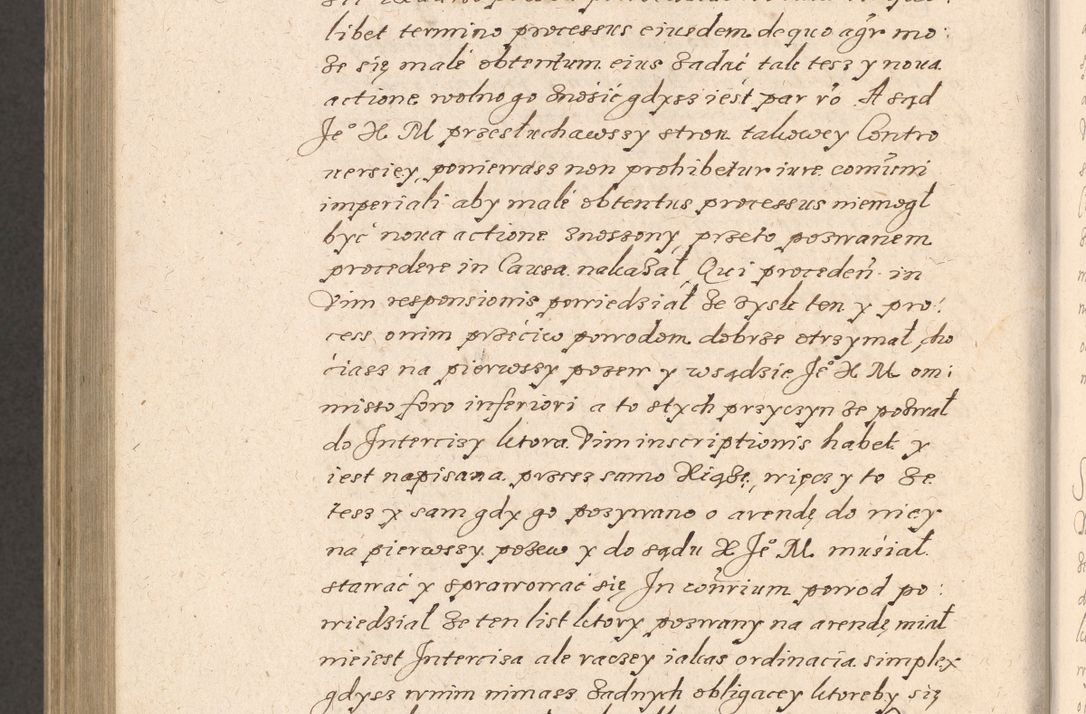 libet termino processus eiusdem de quo agr mo:
że się malé obtentum eius żadać tak tesz y noua
actione wolno go znosić gdysz iest par ro A sąd
Je° X M przesłuchawszy stron takowey Contro
uersiey, ponieważ non prohibetur iure comuni
imperiali aby malé obtentus processus niemogł
być noua actione znoszony, przeto pozwanem
procedere in Causa nakazał, Qui proceden in
Vim responsionis powiedział że zysk ten y pro:
cess onim prześciw powodom dobrze otrzymał, cho
ciasz na pierwszy pozew y wsądzie Je° X M om:
misso foro inferiori a to stych przyczyn że pozwał
do Intercizy ktora Vim inscriptionis habet y
iest napisana przesz samo Xiążę, więcz y to że
tesz y sam gdy go pozywano o arendę do niey
na pierwszy pozew y do sądu X Je° M musiał
stawać y sprawować się In conrium powod po:
wiedział że ten list ktory pozwany na arendę miał
nieiest Interciza ale raczey iakas ordinacia simplex
gdysz wnim nimasz żadnych obligacey ktoreby się